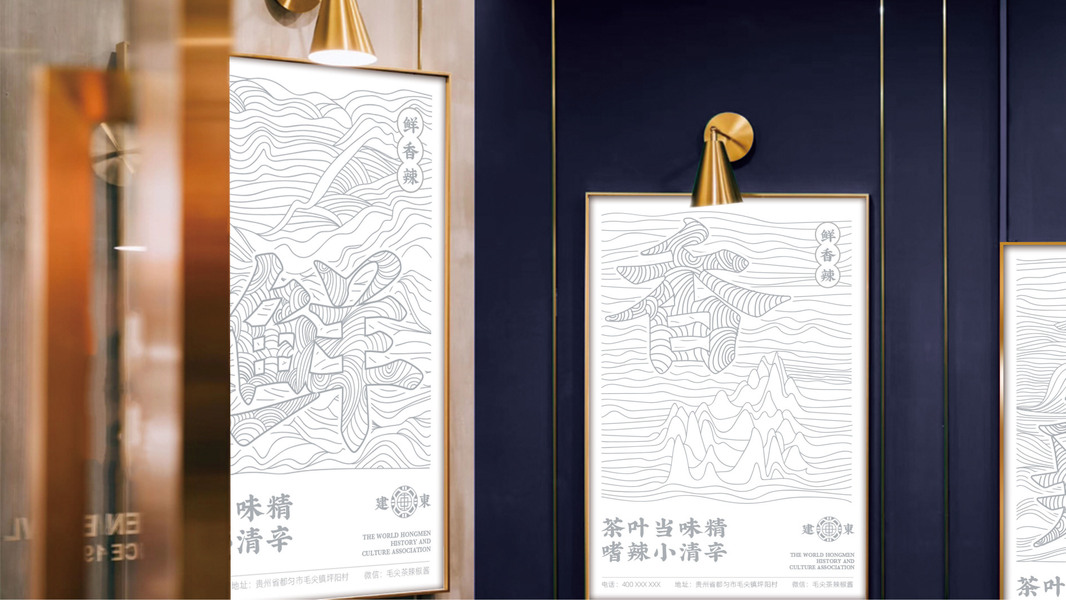 鲜香辣
鲜
味精
清辛
建東
THE WORLD HONGMEN
HISTORY AND
CULTURE ASSOCIATION
地址：贵州省都匀市毛尖镇坪阳村 微信：毛尖茶辣椒酱
鲜香辣
香
茶叶当味精
嗜辣小清辛
建東
THE WORLD HONGMEN
HISTORY AND
CULTURE ASSOCIATION
电话：400 XXX XXX 地址：贵州省都匀市毛尖镇坪阳村 微信：毛尖茶辣椒酱
茶